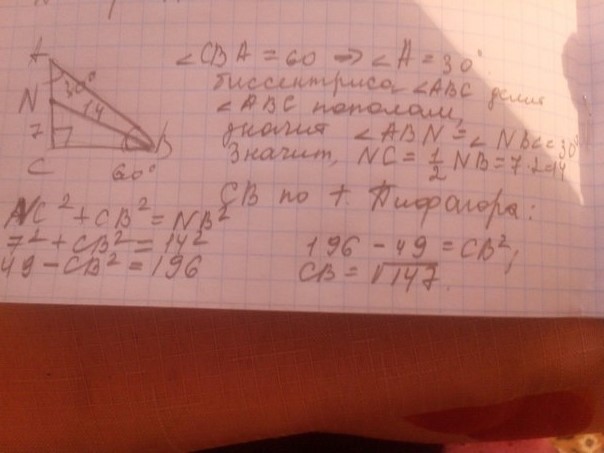 A
30°
N
14
7
C
B
60°
∠CBA = 60 ⇒ ∠A = 30°
биссектриса ∠ABC делит
∠ABC пополам,
значит ∠ABN = ∠NBC = 30°
Значит, NC = 1/2 NB = 7·2=14
CB по т. Пифагора:
NC² + CB² = NB²
7² + CB² = 14²
49 - CB² = 196
196 - 49 = CB²;
CB = √147.